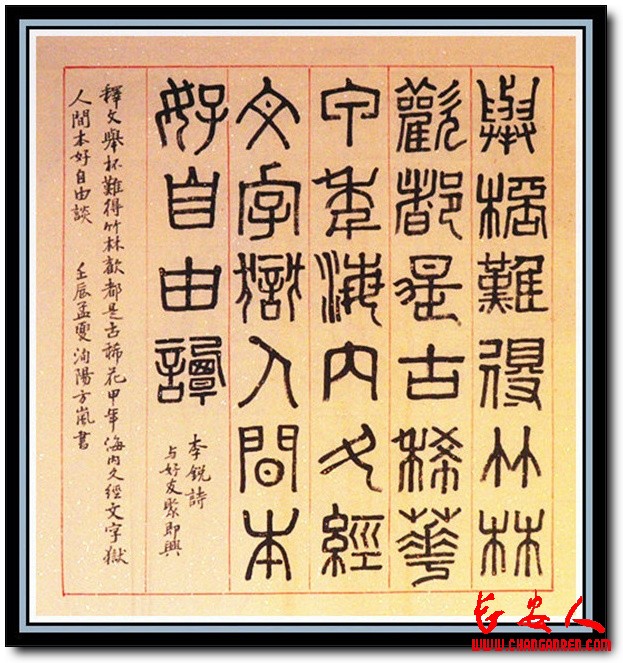 舉桮難得竹林
歡都是古稀華
甲年海内久經
文字獄人間本
好自由譚
李銳詩
与好友聚即興
釋文舉杯難得竹林歡都是古稀花甲年海内久經文字獄
人間本好自由談 壬辰孟夏洵陽方嵐書
长安人
WWW.CHANGANREN.COM